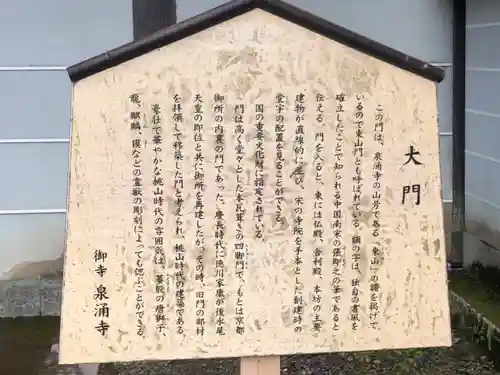 大門
この門は、泉涌寺の山号である「東山」の諺を掲げて
いるので東山門とも呼ばれている。額の字は、独自の書風を
確立したことで知られる中国南宋の張即之の筆であると
伝える。門を入ると、東には仏殿、舎利殿、本坊の主要
建物が直線的に並び、宋の寺院を手本とした創建時の
堂宇の配置を見ることができる。
国の重要文化財に指定されている
門は高く堂々とした本瓦葺きの四脚門で、もとは京都
御所の内裏の門であった。慶長時代に徳川家康が後水尾
天皇の即位と共に御所を再建したが、その時、旧門の部材
を拝領して移築した門と考えられ、桃山時代の建築である。
豪壮で華やかな桃山時代の雰囲気は、蟇股の唐獅子、
龍、麒麟、獏などの霊獣の彫刻によっても偲ぶことができる。
御寺 泉涌寺